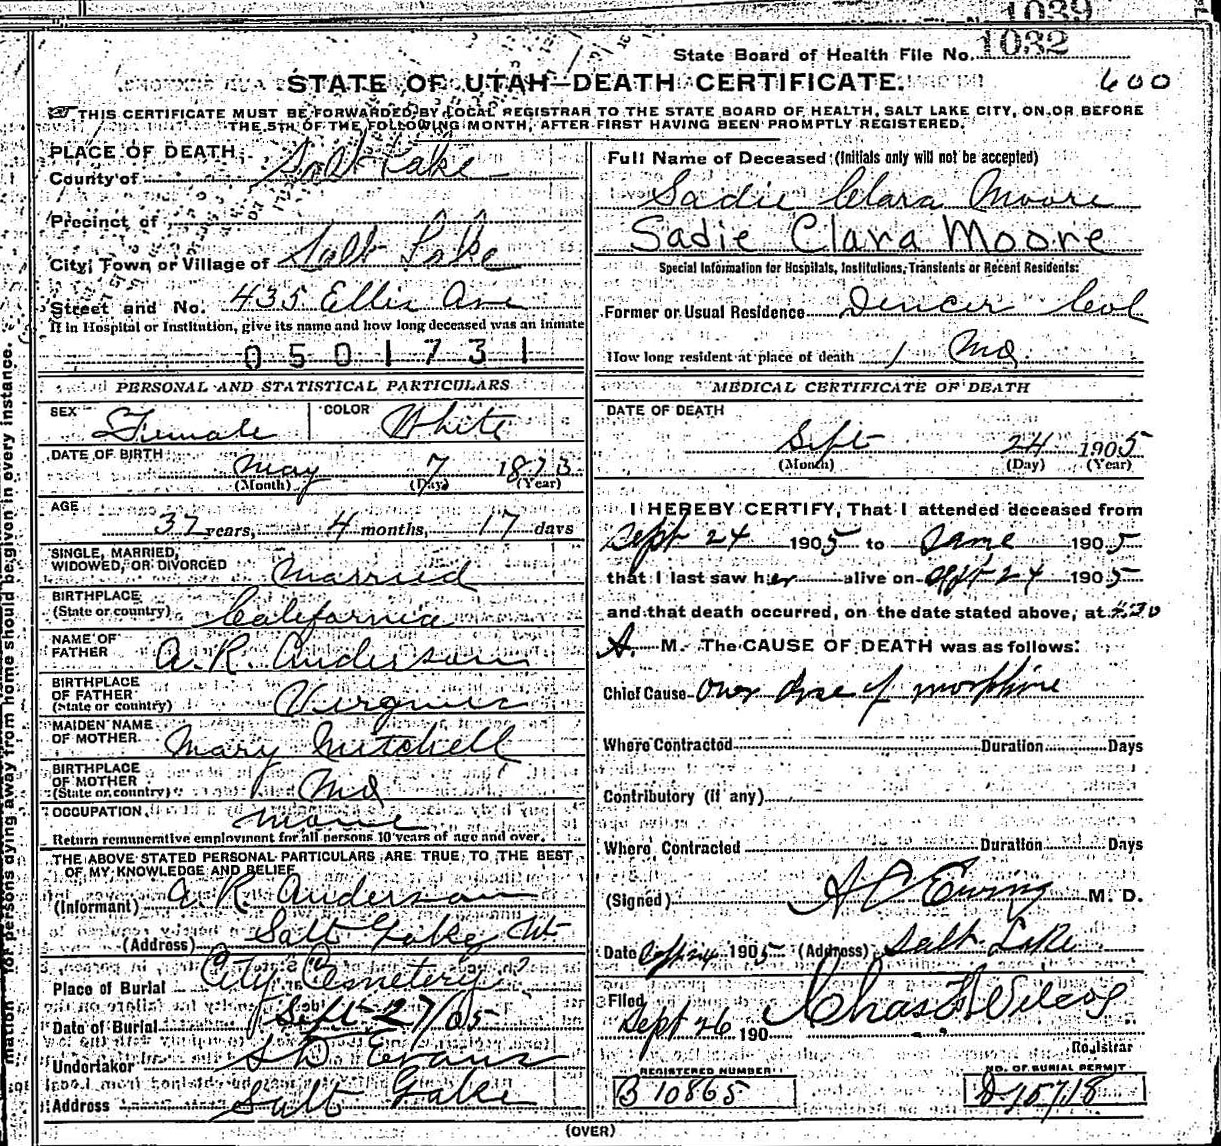 1039
State Board of Health File No. 1032
STATE OF UTAH—DEATH CERTIFICATE.
600
THIS CERTIFICATE MUST BE FORWARDED BY LOCAL REGISTRAR TO THE STATE BOARD OF HEALTH, SALT LAKE CITY, ON OR BEFORE
THE 5TH OF THE FOLLOWING MONTH, AFTER FIRST HAVING BEEN PROMPTLY REGISTERED.
PLACE OF DEATH,
County of Salt Lake
Precinct of
City, Town or Village of Salt Lake
Street and No. 435 Ellis Ave
If in Hospital or Institution, give its name and how long deceased was an inmate
0501731
PERSONAL AND STATISTICAL PARTICULARS
SEX Female COLOR White
DATE OF BIRTH May 7 1873
(Month) (Day) (Year)
AGE 32 years, 4 months, 17 days
SINGLE, MARRIED,
WIDOWED, OR DIVORCED Married
BIRTHPLACE
(State or country) California
NAME OF
FATHER A. R. Anderson
BIRTHPLACE
OF FATHER
(State or country) Virginia
MAIDEN NAME
OF MOTHER Mary Mitchell
BIRTHPLACE
OF MOTHER
(State or country) Md
OCCUPATION
Return remunerative employment for all persons 10 years of age and over.
THE ABOVE STATED PERSONAL PARTICULARS ARE TRUE TO THE BEST
OF MY KNOWLEDGE AND BELIEF
(Informant) A. R. Anderson
(Address) Salt Lake Ut
Place of Burial City Cemetery
Date of Burial Sept 27/05
Undertaker S D Evans
Address Salt Lake
Full Name of Deceased (Initials only will not be accepted)
Sadie Clara Moore
Sadie Clara Moore
Special Information for Hospitals, Institutions, Transients or Recent Residents:
Former or Usual Residence Denver Col
How long resident at place of death 1 Mo.
MEDICAL CERTIFICATE OF DEATH
DATE OF DEATH
Sept 24 1905
(Month) (Day) (Year)
I HEREBY CERTIFY, That I attended deceased from
Sept 24 1905 to Same 1905
that I last saw her alive on Sept 24 1905
and that death occurred, on the date stated above, at 4:30
A. M. The CAUSE OF DEATH was as follows:
Chief Cause Over dose of morphine
Where Contracted Duration Days
Contributory (if any)
Where Contracted Duration Days
(Signed) A C Ewing M. D.
Date Sept 24 1905 (Address) Salt Lake
Filed
Sept 26, 190 Chas F Wilcox
Registrar
REGISTERED NUMBER
B 10865
NO. OF BURIAL PERMIT
D 15718
(OVER)
for persons dying away from home should be given in every instance.